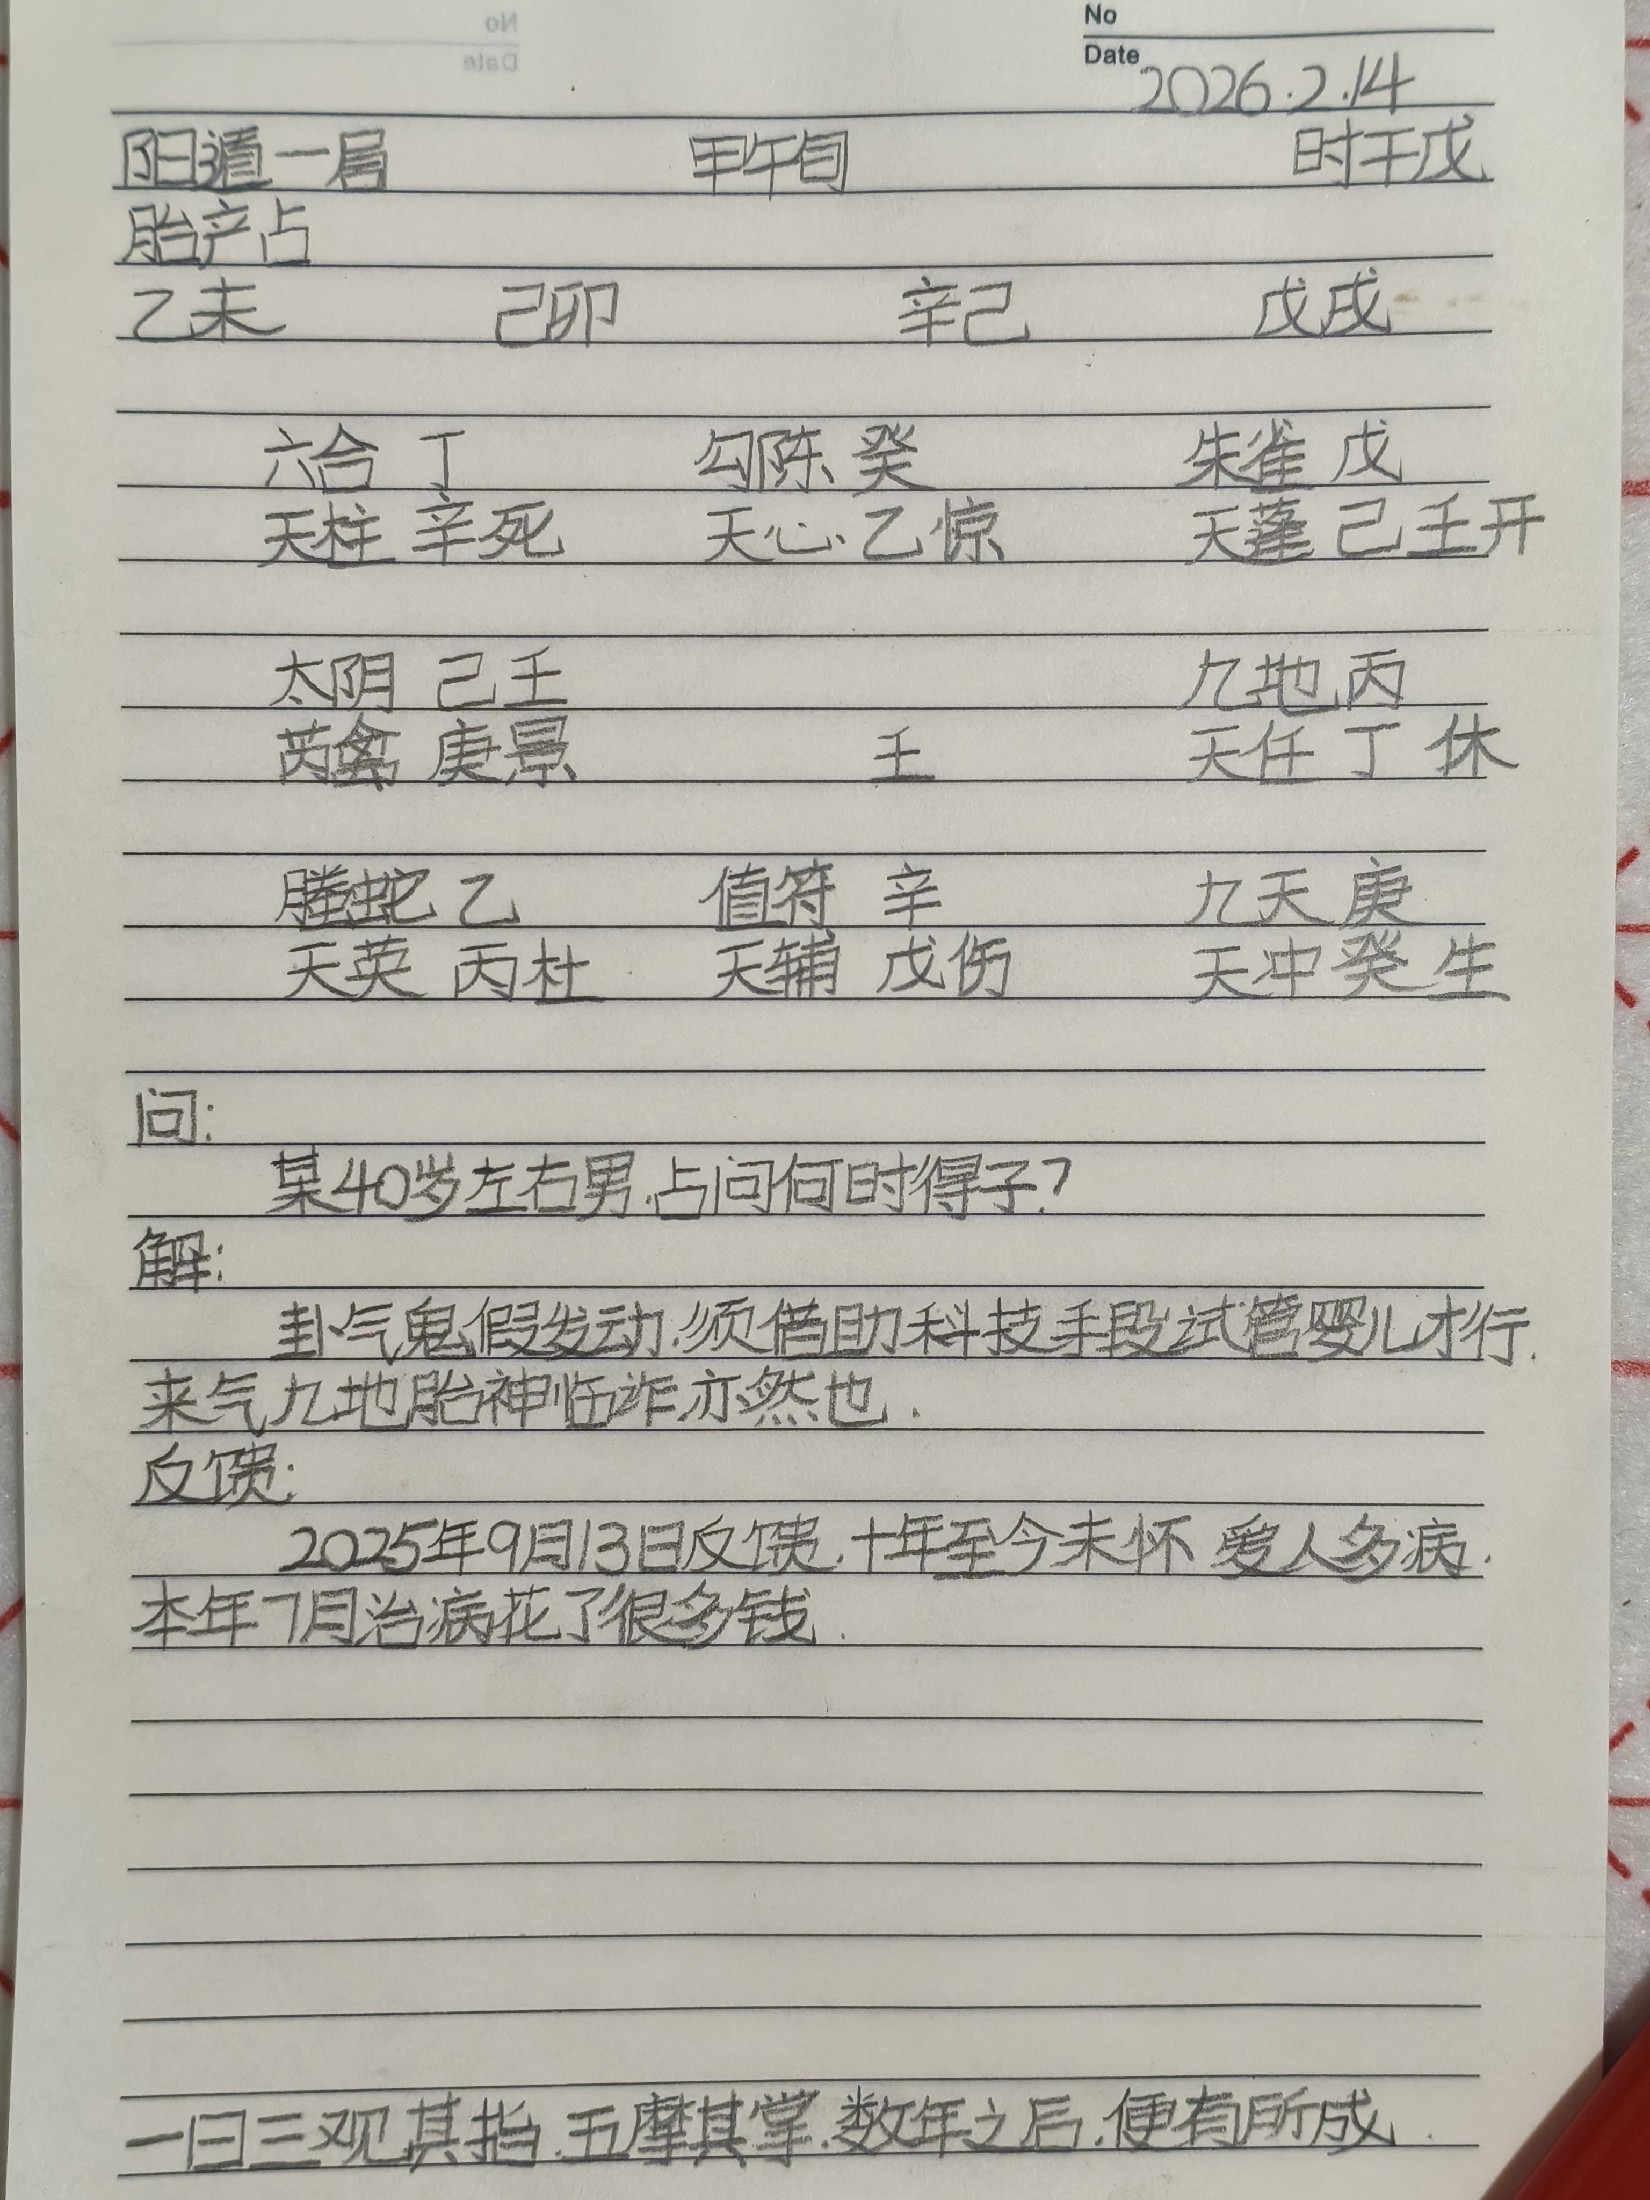 No
Date 2026.2.14
阳遁一局 甲午旬 时干戊
胎产占
乙未 己卯 辛己 戊戌
六合 丁 勾陈 癸 朱雀 戊
天柱 辛死 天心 乙惊 天蓬 己壬开
太阴 己壬 九地 丙
芮禽 庚景 壬 天任 丁 休
螣蛇 乙 值符 辛 九天 庚
天英 丙杜 天辅 戊伤 天冲 癸 生
问:
某40岁左右男.占问何时得子?
解:
卦气鬼假发动.须借助科技手段试管婴儿才行.
来气九地胎神临诈亦然也.
反馈:
2025年9月13日反馈.十年至今未怀 爱人多病.
本年7月治病花了很多钱.
一日三观其指.五摩其掌.数年之后.便有所成.